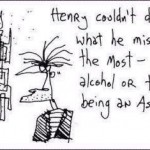 Henry couldn't d
what he mis
the most -
alcohol or t
being an As